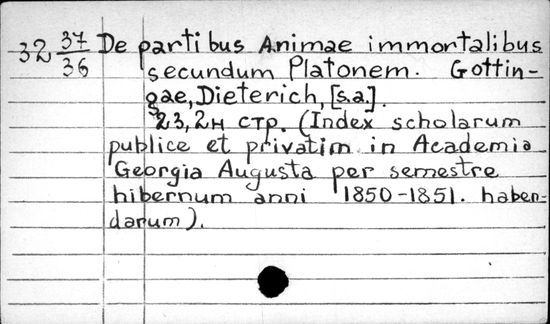 32 37/36 De partibus Animae immortalibus
secundum Platonem. Gottin-
gae, Dieterich, [s.a.].
23, 2н стр. (Index scholarum
publice et privatim in Academia
Georgia Augusta per semestre
hibernum anni 1850-1851. haben-
darum).